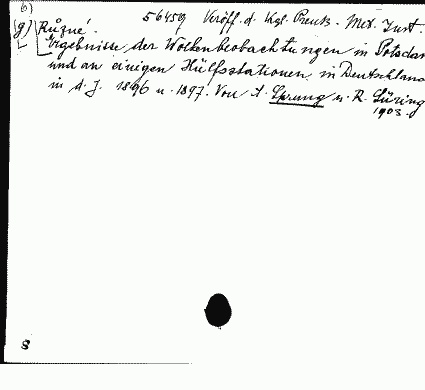 6)
g) Různé. 56459 Veröff. d. Kgl. Preuß. Met. Inst.
Ergebnisse der Wolkenbeobachtungen in Potsdam
und an einigen Hülfsstationen in Deutschland
in d. J. 1896 u. 1897. Von A. Sprung u. R. Süring
1903.
8